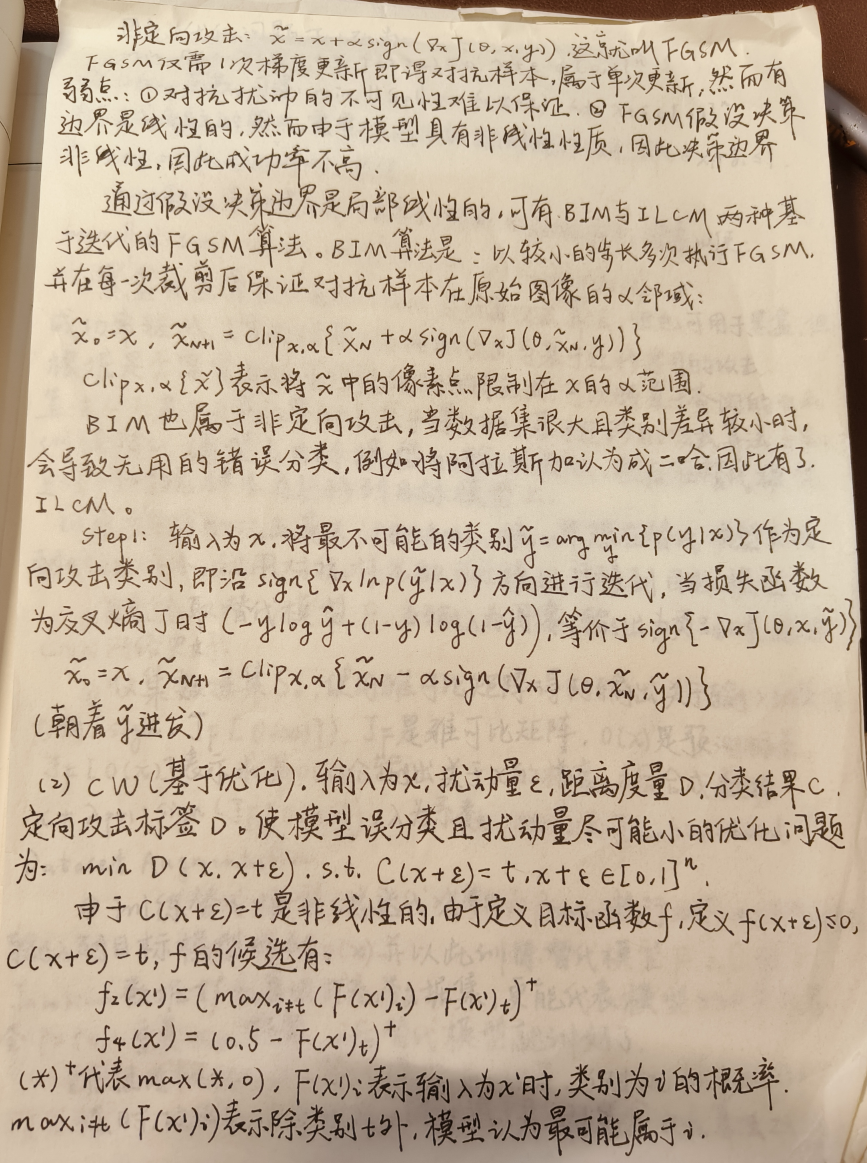 非定向攻击: x̃ = x + αsign(∇xJ(θ,x,y)) 这就叫FGSM.
FGSM仅需1次梯度更新即得对抗样本,属于单次更新,然而有
弱点: ①对抗扰动的不可见性难以保证. ② FGSM假设决策
边界是线性的,然而由于模型具有非线性性质,因此决策边界
非线性,因此成功率不高.
通过假设决策边界是局部线性的,可有BIM与ILCM两种基
于迭代的FGSM算法。BIM算法是:以较小的步长多次执行FGSM.
并在每一次裁剪后保证对抗样本在原始图像的α邻域:
x̃₀=x, x̃N+1 = Clipx,α{x̃N + αsign(∇xJ(θ,x̃N,y))}
Clipx,α{x̃}表示将x̃中的像素点限制在x的α范围.
BIM也属于非定向攻击,当数据集很大且类别差异较小时,
会导致无用的错误分类,例如将阿拉斯加认为成二哈.因此有了
ILCM。
Step1: 输入为x,将最不可能的类别ỹ=arg min y{p(y|x)}作为定
向攻击类别,即沿sign{∇x ln p(ỹ|x)}方向进行迭代,当损失函数
为交叉熵J时(-ylogŷ+(1-y)log(1-ŷ)),等价于sign{-∇xJ(θ,x,ỹ)}
x̃₀=x, x̃N+1 = Clipx,α{x̃N - αsign(∇xJ(θ,x̃N,ỹ))}
(朝着ỹ进发)
(2) CW(基于优化).输入为x,扰动量ε,距离度量D.分类结果C.
定向攻击标签D。使模型误分类且扰动量尽可能小的优化问题
为: min D(x,x+ε). s.t. C(x+ε)=t,x+ε∈[0,1]ⁿ.
由于C(x+ε)=t是非线性的,由于定义目标函数f,定义f(x+ε)≤0,
C(x+ε)=t,f的候选有:
f₂(x') = (max i≠t (F(x')i) - F(x')t)⁺
f₄(x') = (0.5 - F(x')t)⁺
(*)⁺代表max(*,0), F(x')i表示输入为x'时,类别为i的概率.
max i≠t (F(x')i)表示除类别t外,模型认为最可能属于i.